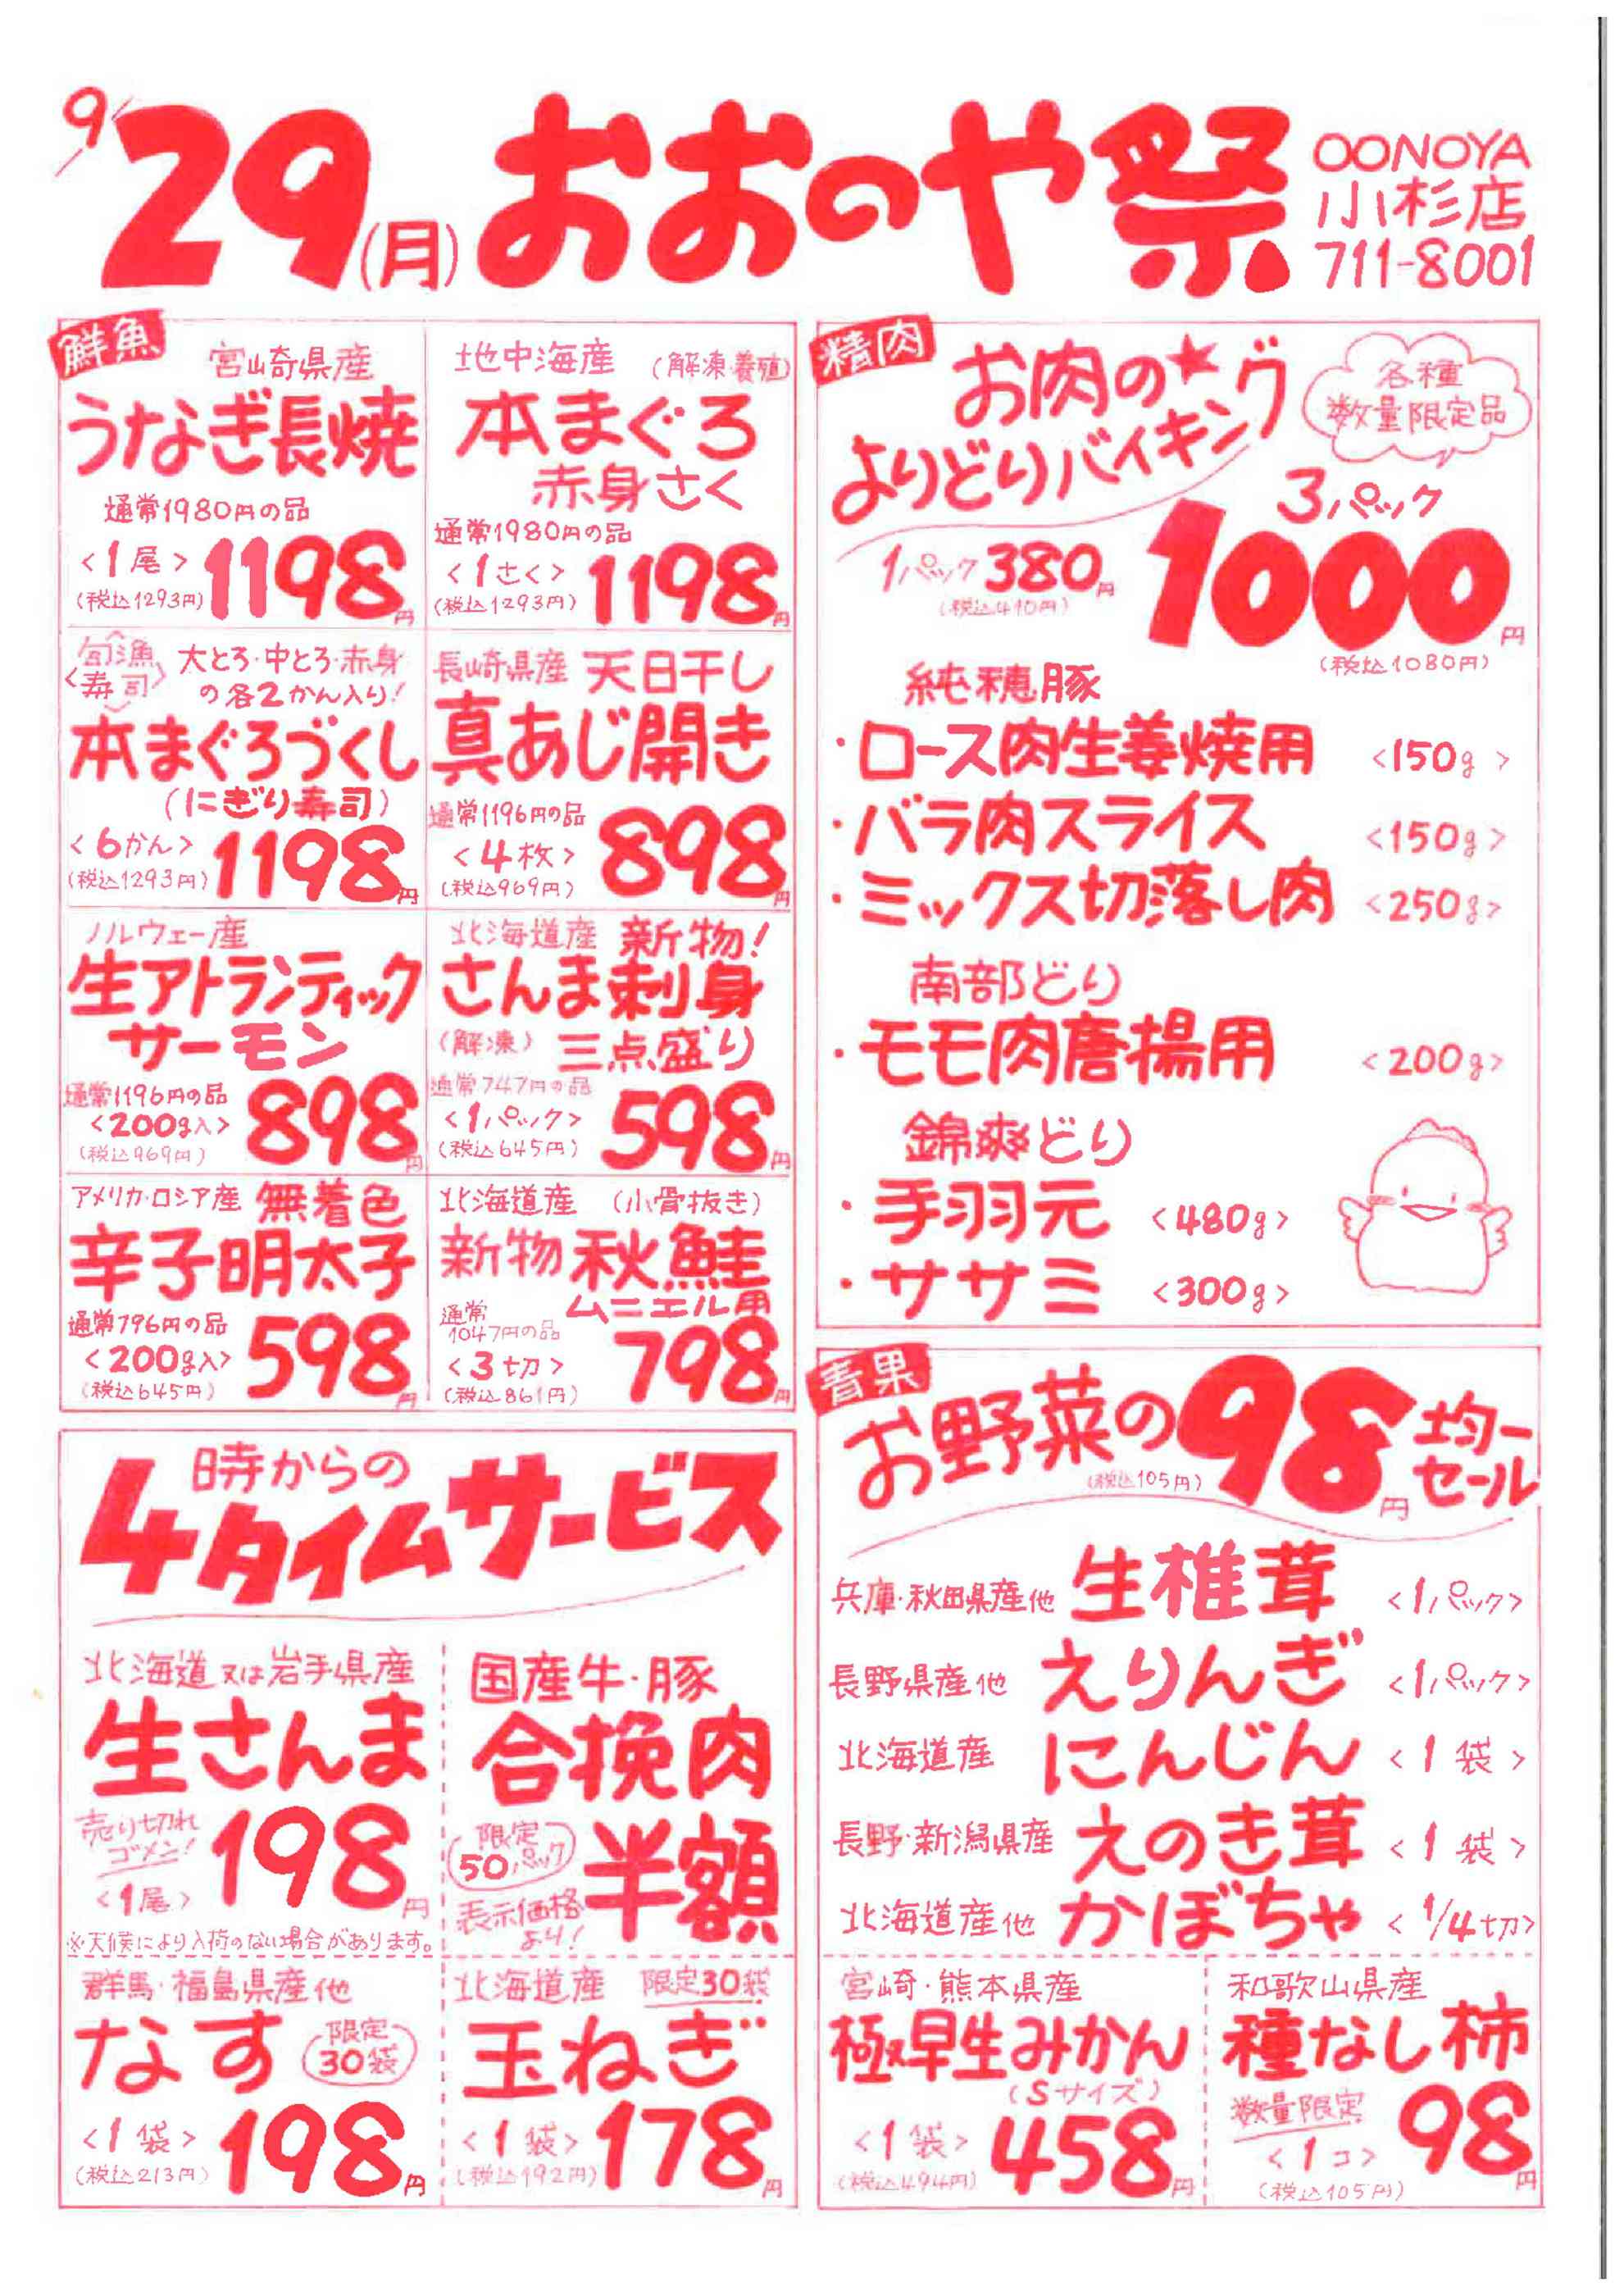 9/29(月)おおのや祭
OONOYA
小杉店
711-8001
鮮魚
宮崎県産
うなぎ長焼
通常1980円の品
<1尾>
(税込1293円)
1198円
地中海産 (解凍・養殖)
本まぐろ
赤身さく
通常1980円の品
<1さく>
(税込1293円)
1198円
旬漁
寿司
大とろ・中とろ・赤身
の各2かん入り!
本まぐろづくし
(にぎり寿司)
<6かん>
(税込1293円)
1198円
長崎県産 天日干し
真あじ開き
通常1196円の品
<4枚>
(税込969円)
898円
ノルウェー産
生アトランティック
サーモン
通常1196円の品
<200g入>
(税込969円)
898円
北海道産 新物!
さんま刺身
(解凍) 三点盛り
通常747円の品
<1パック>
(税込645円)
598円
アメリカ・ロシア産 無着色
辛子明太子
通常796円の品
<200g入>
(税込645円)
598円
北海道産 (小骨抜き)
新物 秋鮭
ムニエル用
通常
1047円の品
<3切>
(税込861円)
798円
精肉
お肉の★
よりどりバイキング
各種
数量限定品
1パック380円
(税込410円)
3パック
1000円
(税込1080円)
純穂豚
・ロース肉生姜焼用 <150g>
・バラ肉スライス <150g>
・ミックス切落し肉 <250g>
南部どり
・モモ肉唐揚用 <200g>
錦爽どり
・手羽元 <480g>
・ササミ <300g>
4時からの
タイムサービス
北海道又は岩手県産
生さんま
売り切れ
ゴメン!
<1尾>
198円
※天候により入荷のない場合があります。
国産牛・豚
合挽肉
限定
50パック
表示価格
より!
半額
群馬・福島県産他
なす
限定
30袋
<1袋>
(税込213円)
198円
北海道産 限定30袋
玉ねぎ
<1袋>
(税込192円)
178円
青果
お野菜の98円均一
セール
(税込105円)
兵庫・秋田県産他 生椎茸 <1パック>
長野県産他 えりんぎ <1パック>
北海道産 にんじん <1袋>
長野・新潟県産 えのき茸 <1袋>
北海道産他 かぼちゃ <1/4切>
宮崎・熊本県産
極早生みかん
(Sサイズ)
<1袋>
(税込494円)
458円
和歌山県産
種なし柿
数量限定
<1コ>
(税込105円)
98円